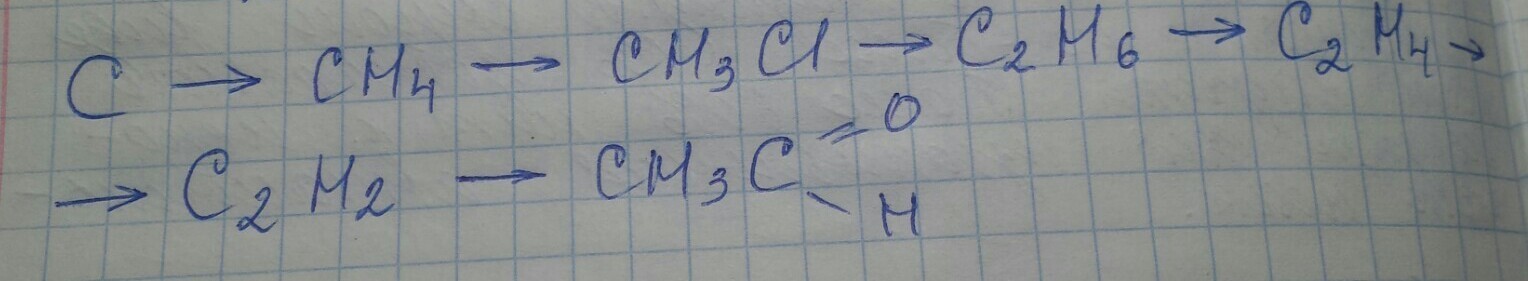 C → CH₄ → CH₃Cl → C₂H₆ → C₂H₄ →
→ C₂H₂ → CH₃C=O
\H